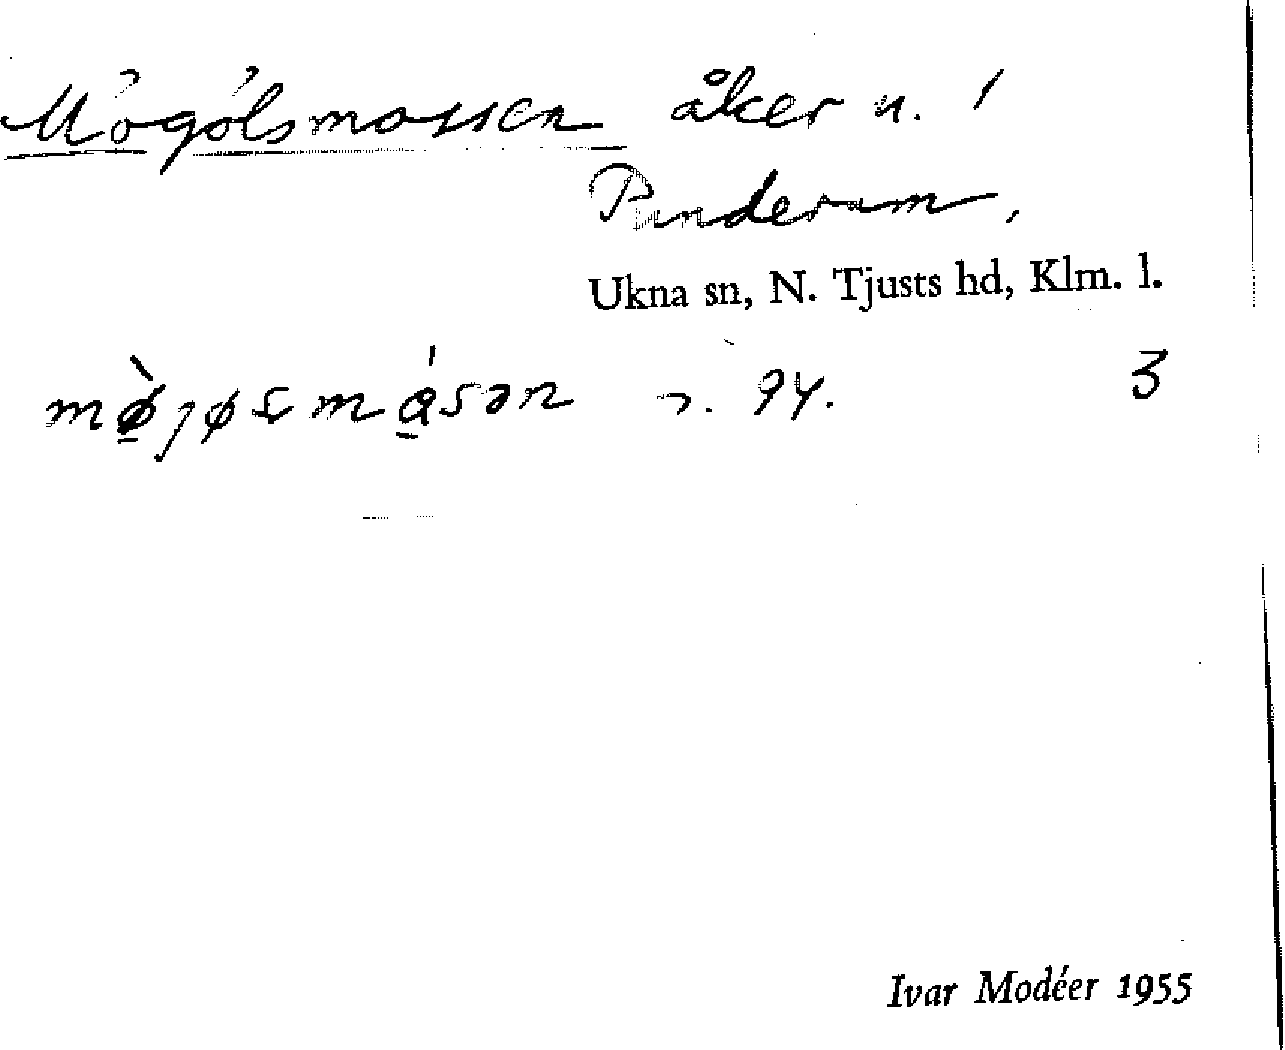 Mögölsmossen åker u. /
Punderum,
Ukna sn, N. Tjusts hd, Klm. l.
mø̀jøsmásən n. 94. 3
Ivar Modéer 1955